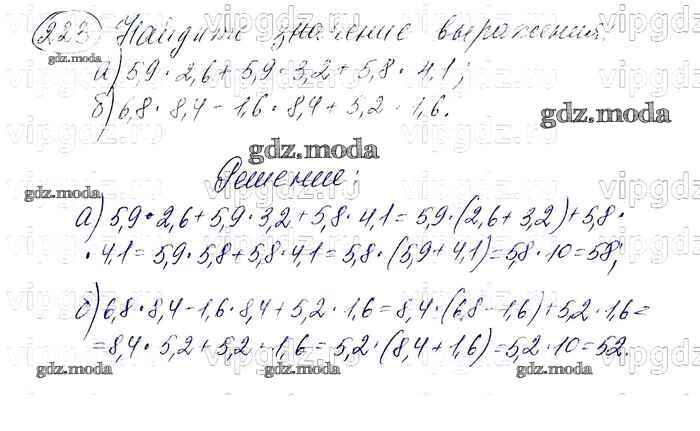 223 Найдите значение выражения:
а) 5,9 · 2,6 + 5,9 · 3,2 + 5,8 · 4,1;
б) 6,8 · 8,4 - 1,6 · 8,4 + 5,2 · 1,6.
gdz.moda
gdz.moda
gdz.moda
Решение:
gdz.moda
а) 5,9 · 2,6 + 5,9 · 3,2 + 5,8 · 4,1 = 5,9 · (2,6 + 3,2) + 5,8 ·
· 4,1 = 5,9 · 5,8 + 5,8 · 4,1 = 5,8 · (5,9 + 4,1) = 5,8 · 10 = 58;
б) 6,8 · 8,4 - 1,6 · 8,4 + 5,2 · 1,6 = 8,4 · (6,8 - 1,6) + 5,2 · 1,6 =
= 8,4 · 5,2 + 5,2 · 1,6 = 5,2 · (8,4 + 1,6) = 5,2 · 10 = 52.
gdz.moda gdz.moda gdz.moda